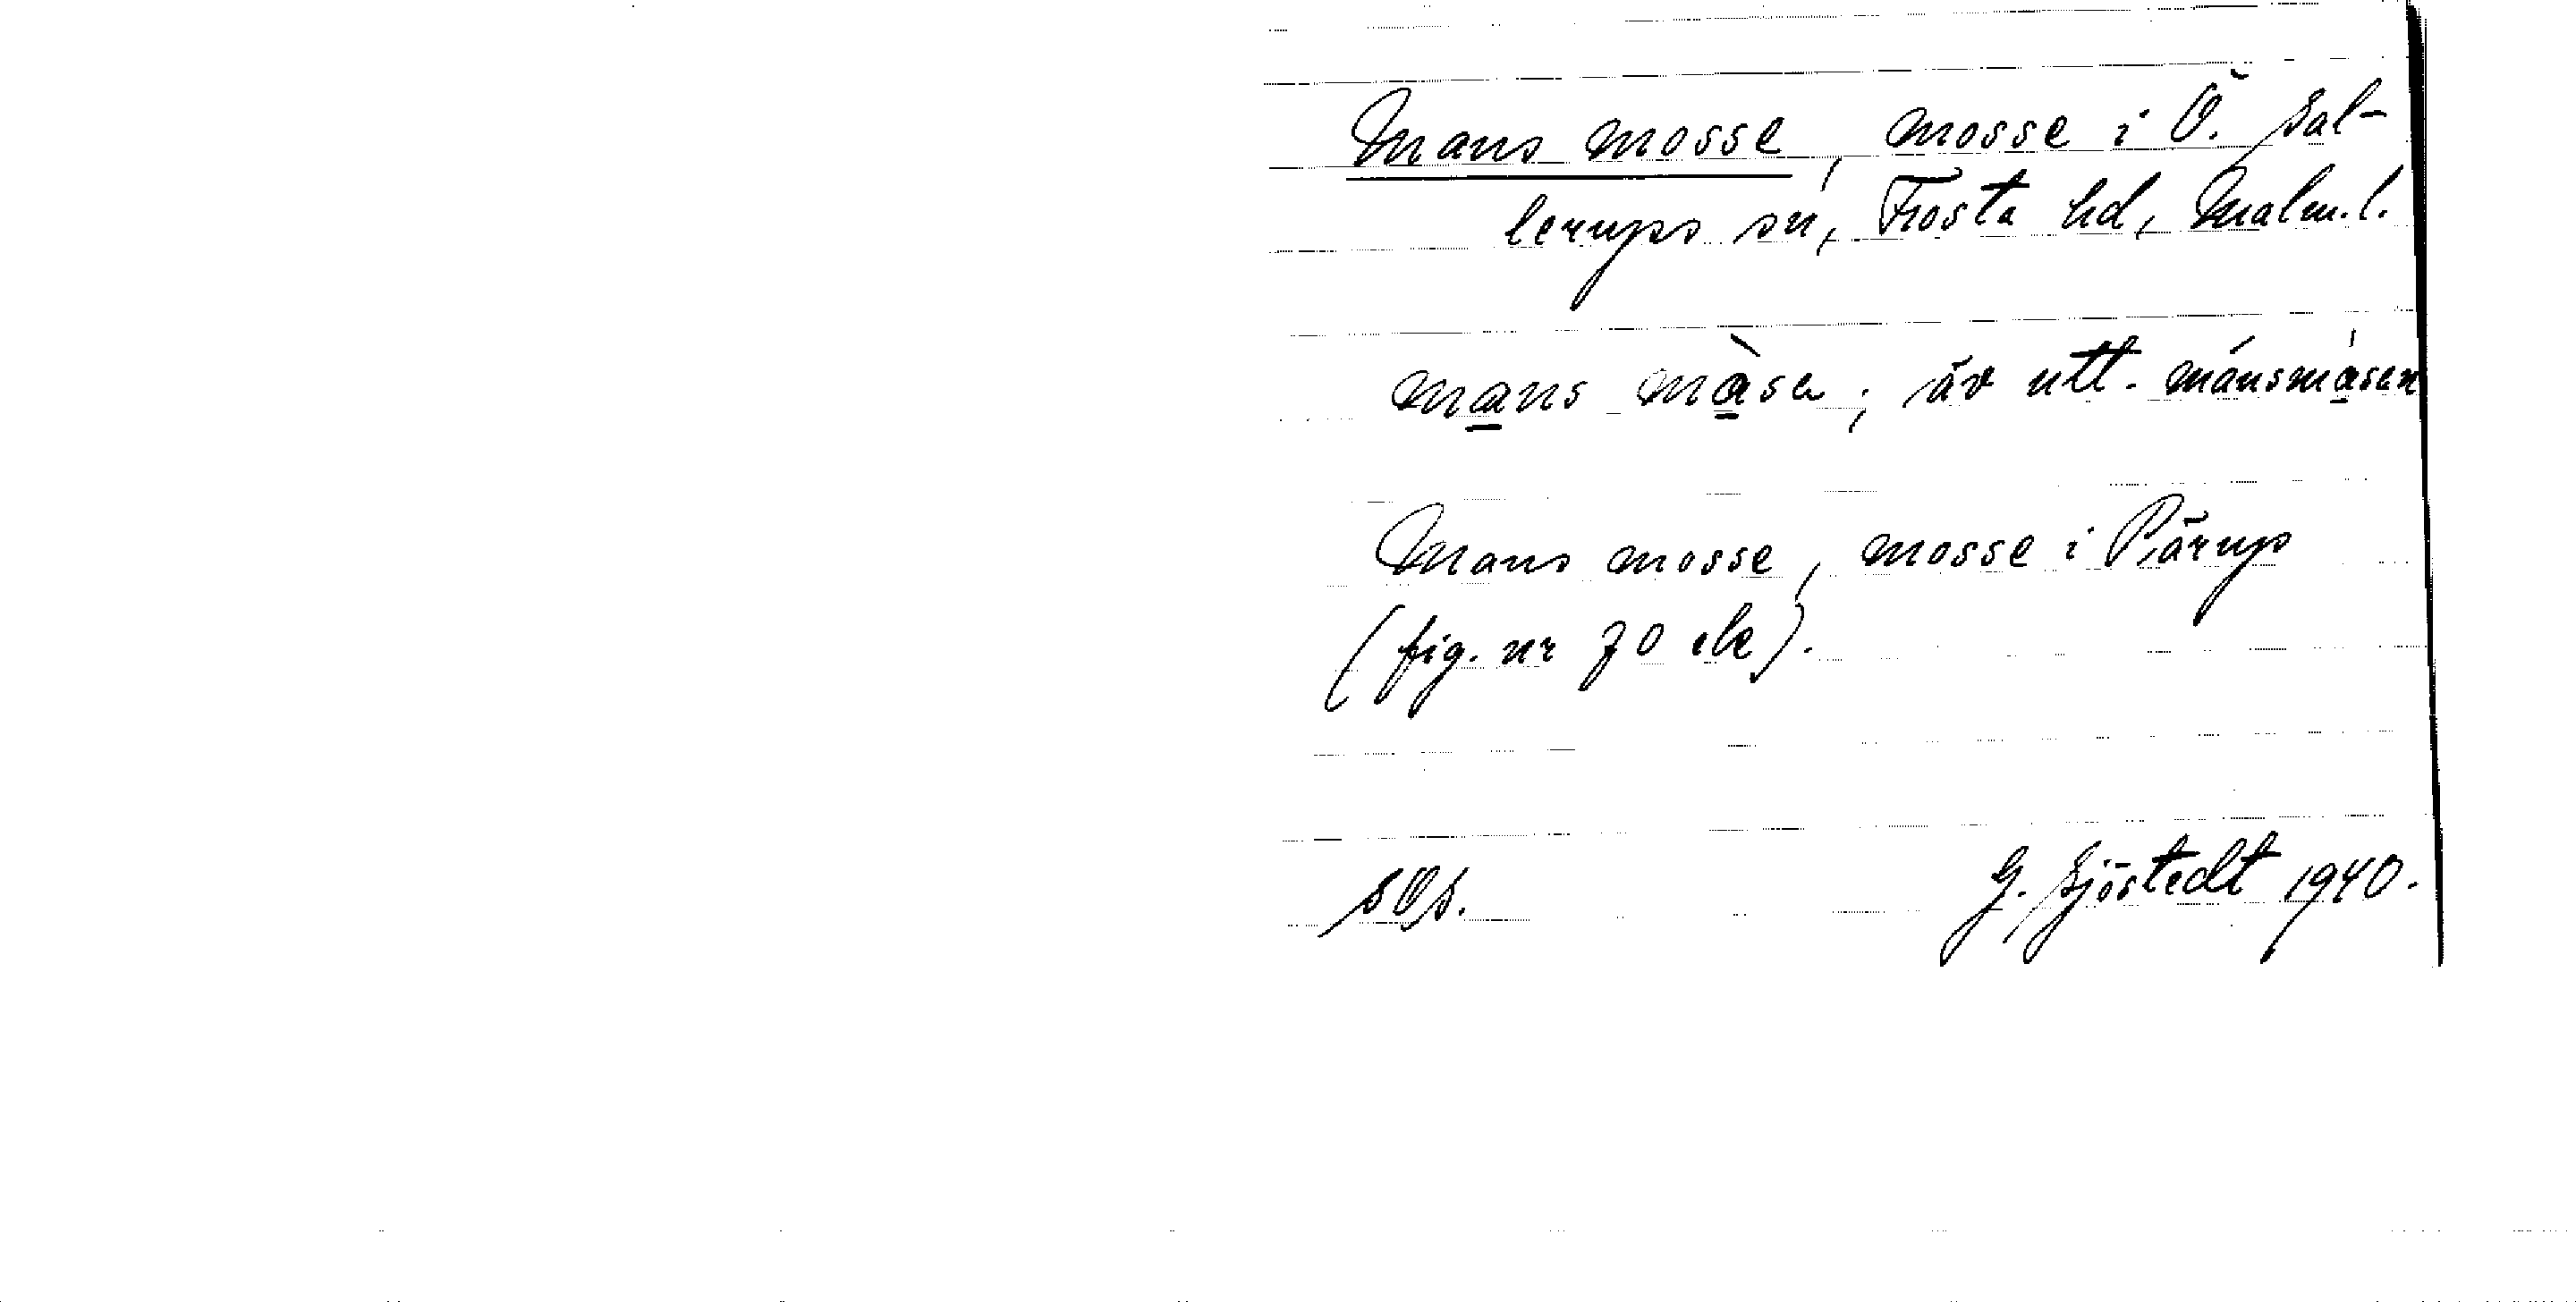 Mans mosse, mosse i Ö. Sal-
lerups sn, Frosta hd, Malm.l.
mans màsa; äv utt. mánsmåsen
Mans mosse, mosse i Pärup
(fig. nr 70 ek).
SOS.
G. Sjöstedt 1940.